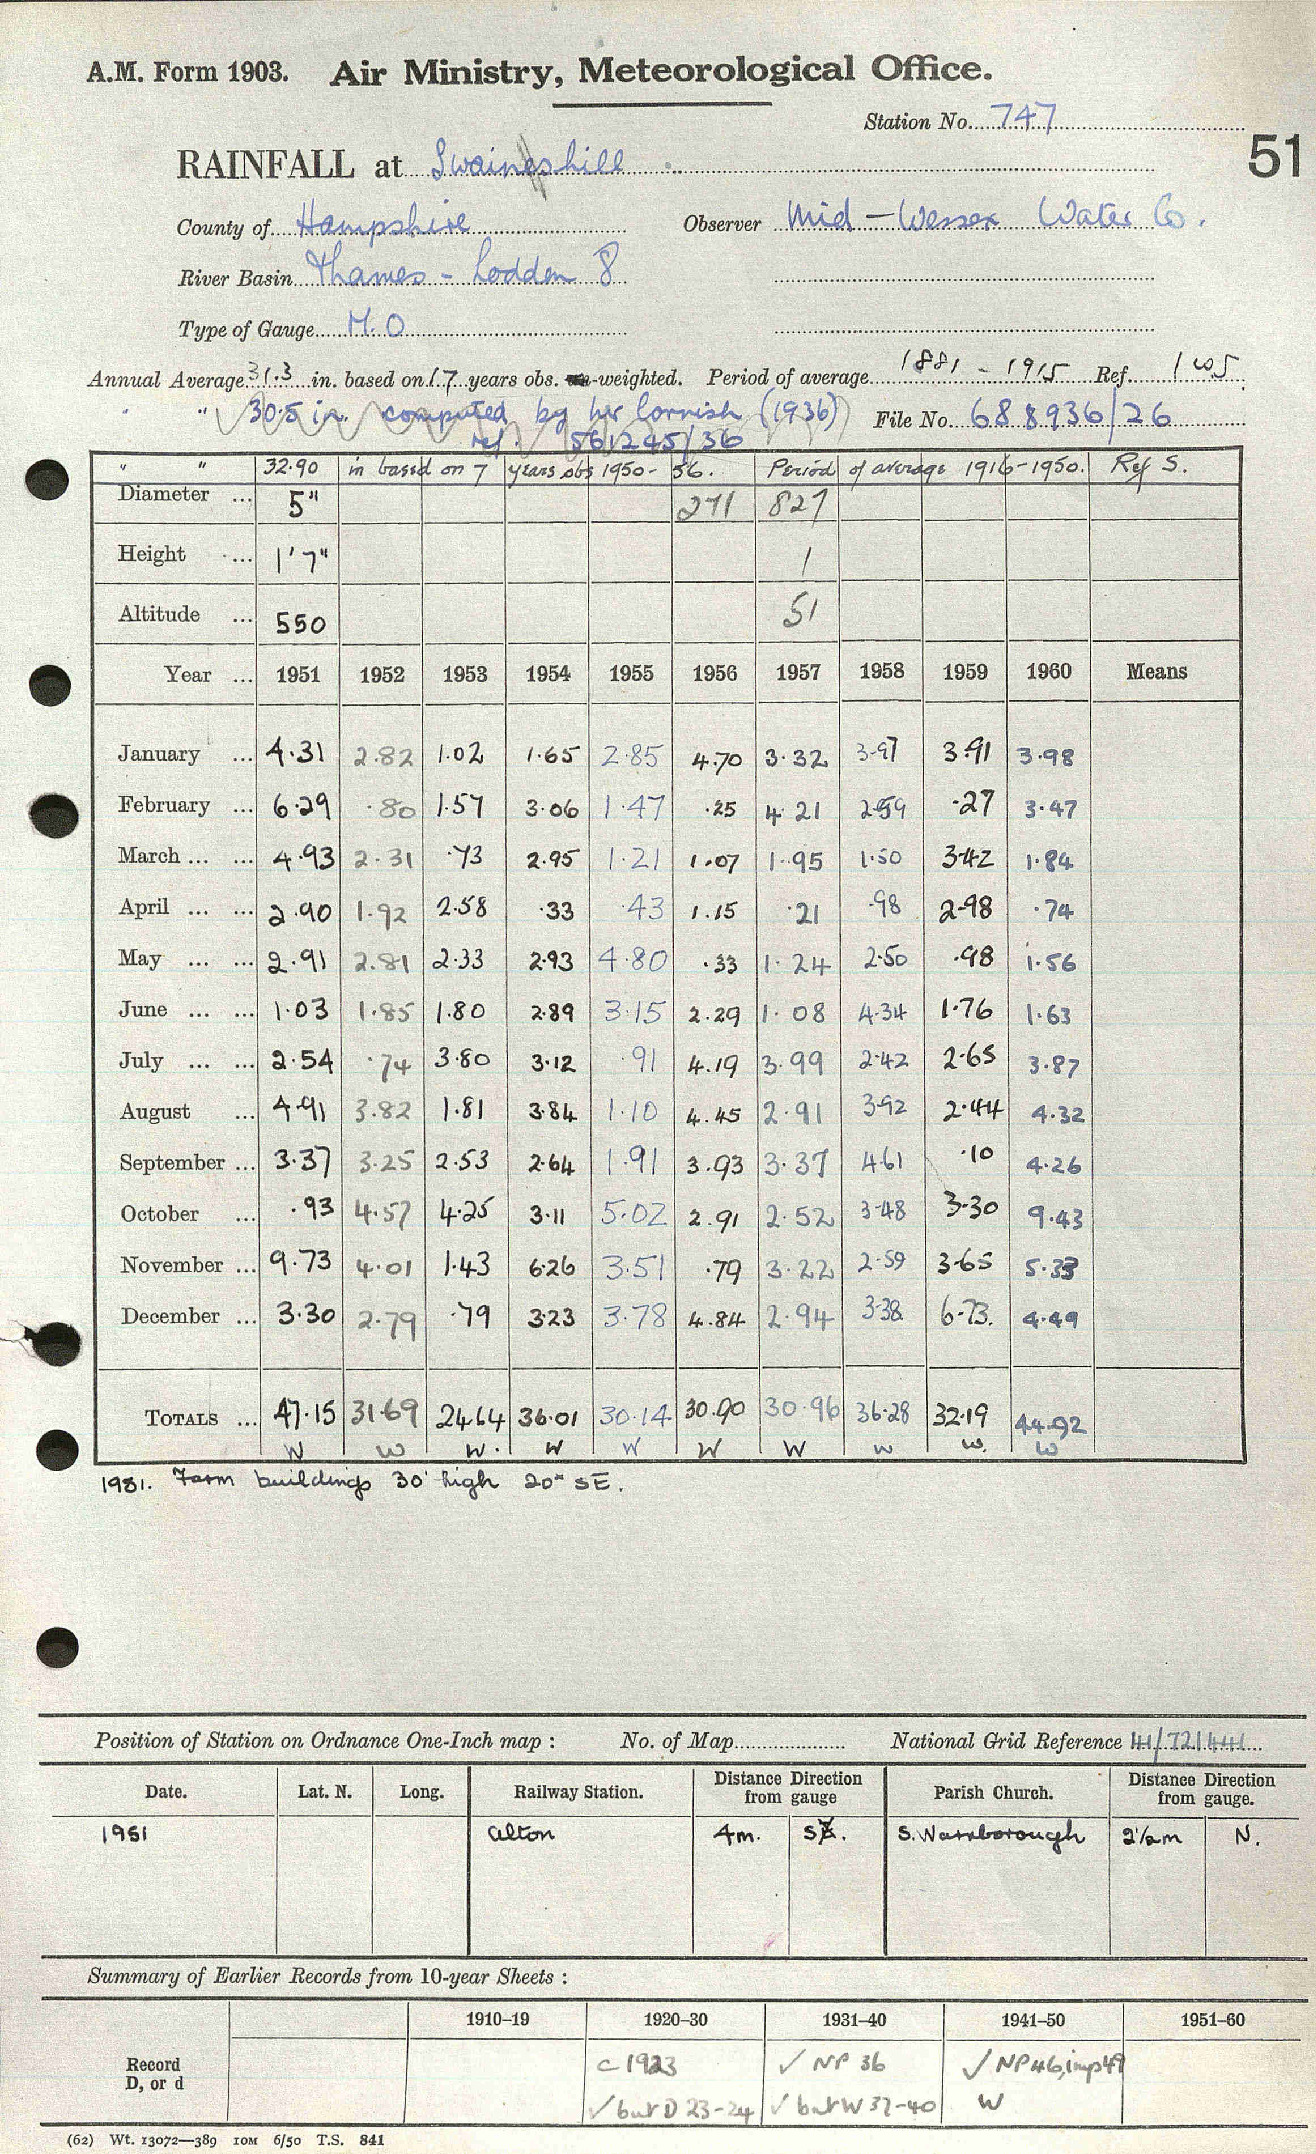 A.M. Form 1903. Air Ministry, Meteorological Office.
Station No. 747
51
RAINFALL at Swaineshill
County of Hampshire Observer Mid-Wessex Water Co.
River Basin Thames - Lodden 8
Type of Gauge M.O
Annual Average 31.3 in. based on 17 years obs. -weighted. Period of average 1881 - 1915 Ref.
" " 30.5 in. computed by Mr Cornish (1936) File No. 688936/26
ref. 561245/36
" " 32.90 in based on 7 years obs 1950-56. Period of average 1916-1950. Ref S.
Diameter ... 5" 271 827
Height ... 1'7" 1
Altitude ... 550 51
Year ... 1951 1952 1953 1954 1955 1956 1957 1958 1959 1960 Means
January ... 4.31 2.82 1.02 1.65 2.85 4.70 3.32 3.97 3.91 3.98
February ... 6.29 .80 1.57 3.06 1.47 .25 4.21 2.59 .27 3.47
March ... ... 4.93 2.31 .73 2.95 1.21 1.07 1.95 1.50 3.42 1.84
April ... ... 2.90 1.92 2.58 .33 .43 1.15 .21 .98 2.98 .74
May ... ... 2.91 2.81 2.33 2.93 4.80 .33 1.24 2.50 .98 1.56
June ... ... 1.03 1.85 1.80 2.89 3.15 2.29 1.08 4.34 1.76 1.63
July ... ... 2.54 .74 3.80 3.12 .91 4.19 3.99 2.42 2.65 3.87
August ... 4.91 3.82 1.81 3.84 1.10 4.45 2.91 3.92 2.44 4.32
September ... 3.37 3.25 2.53 2.64 1.91 3.93 3.37 4.61 .10 4.26
October ... .93 4.57 4.25 3.11 5.02 2.91 2.52 3.48 3.30 9.43
November ... 9.73 4.01 1.43 6.26 3.51 .79 3.22 2.59 3.65 5.33
December ... 3.30 2.79 .79 3.23 3.78 4.84 2.94 3.38 6.73. 4.49
TOTALS ... 47.15 31.69 24.64 36.01 30.14 30.90 30.96 36.28 32.19 44.92
W W W. W W W W W W. W
1951. Farm buildings 30' high 20° SE.
Position of Station on Ordnance One-Inch map : No. of Map National Grid Reference 41/721441
Date. Lat. N. Long. Railway Station. Distance Direction from gauge Parish Church. Distance Direction from gauge.
1951 Alton 4m. SE. S. Warnborough 2½m N.
Summary of Earlier Records from 10-year Sheets :
1910–19 1920–30 1931–40 1941–50 1951–60
Record D, or d c 1923 ✓ NP 36 ✓ NP46, imp49
✓ but D 23-24 ✓ but W 37-40 W
(62) Wt. 13072—389 10M 6/50 T.S. 841